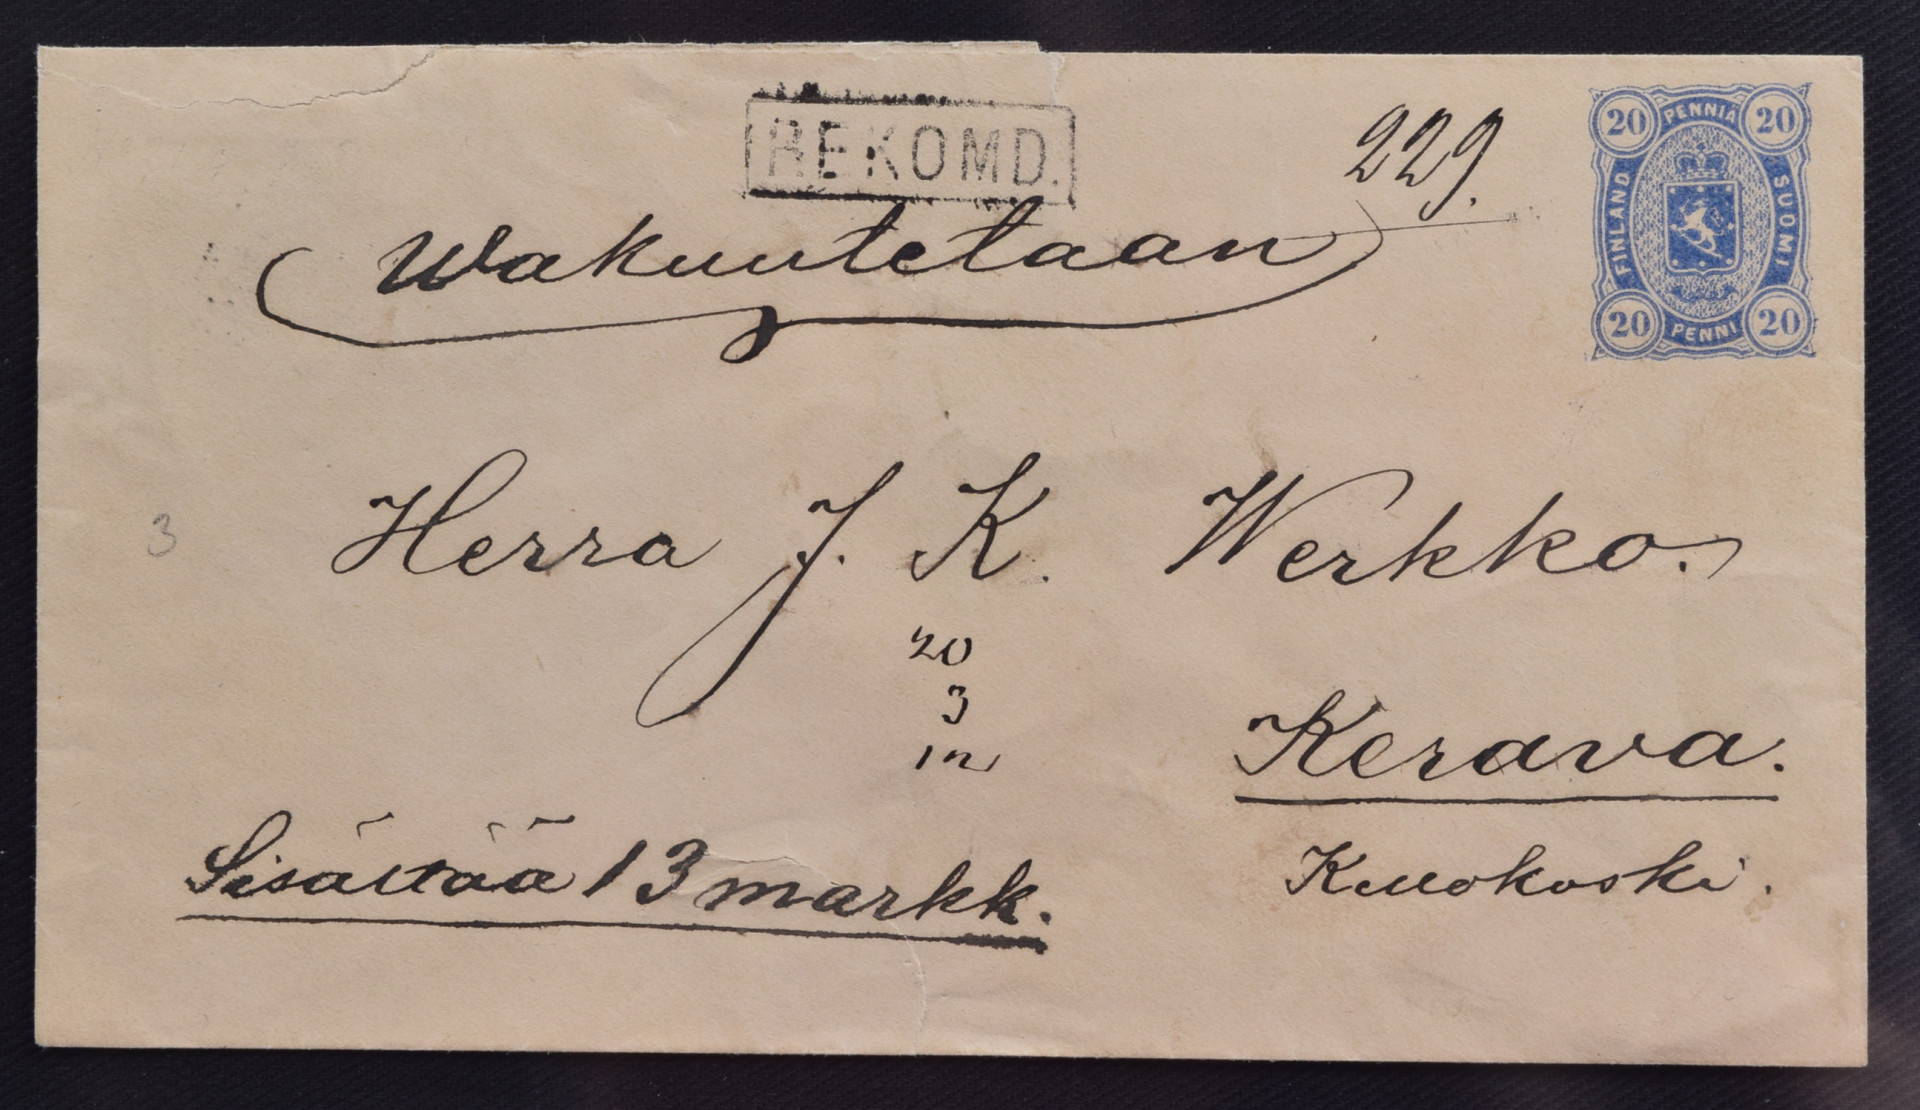 REKOMD.
229.
20 PENNIÄ 20
FINLAND SUOMI
20 PENNI 20
Wakuutetaan
Herra J. K. Werkko.
3
20
3
Kerava.
Sisältää 13 markk.
Kellokoski.